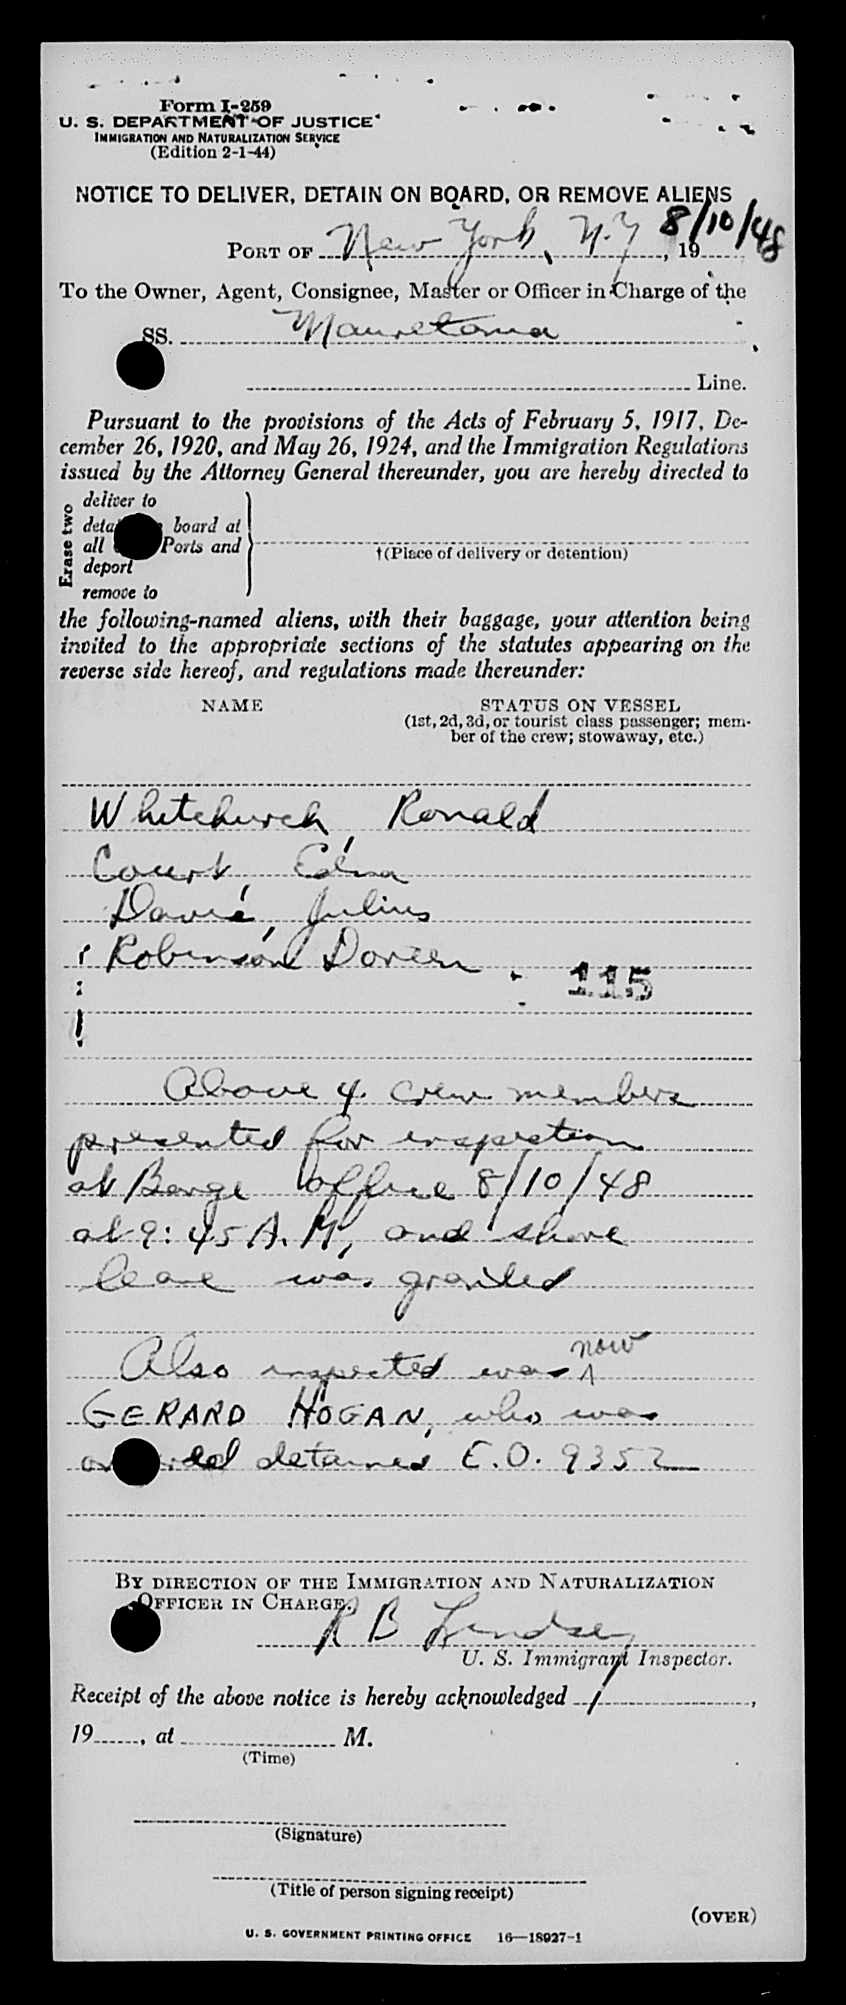 Form I-259
U. S. DEPARTMENT OF JUSTICE
IMMIGRATION AND NATURALIZATION SERVICE
(Edition 2-1-44)
NOTICE TO DELIVER, DETAIN ON BOARD, OR REMOVE ALIENS
PORT OF New York, N.Y, 19 8/10/48
To the Owner, Agent, Consignee, Master or Officer in Charge of the
SS. Mauretania
Line.
Pursuant to the provisions of the Acts of February 5, 1917, De-
cember 26, 1920, and May 26, 1924, and the Immigration Regulations
issued by the Attorney General thereunder, you are hereby directed to
Erase two
deliver to
board at
all Ports and
deport
remove to
†(Place of delivery or detention)
the following-named aliens, with their baggage, your attention being
invited to the appropriate sections of the statutes appearing on the
reverse side hereof, and regulations made thereunder:
NAME STATUS ON VESSEL
(1st, 2d, 3d, or tourist class passenger; mem-
ber of the crew; stowaway, etc.)
Whitchurch, Ronald
Court, Edna
Davis, Julius
Robinson Doreen
115
Above 4 crew members
presented for inspection
at Barge office 8/10/48
at 9:45 A.M, and shore
leave was granted
Also inspected was now
GERARD HOGAN, who was
detained E.O. 9352
BY DIRECTION OF THE IMMIGRATION AND NATURALIZATION
OFFICER IN CHARGE.
R B Lindsey
U. S. Immigrant Inspector.
Receipt of the above notice is hereby acknowledged ,
19 , at M.
(Time)
(Signature)
(Title of person signing receipt)
(OVER)
U. S. GOVERNMENT PRINTING OFFICE 16—18927-1